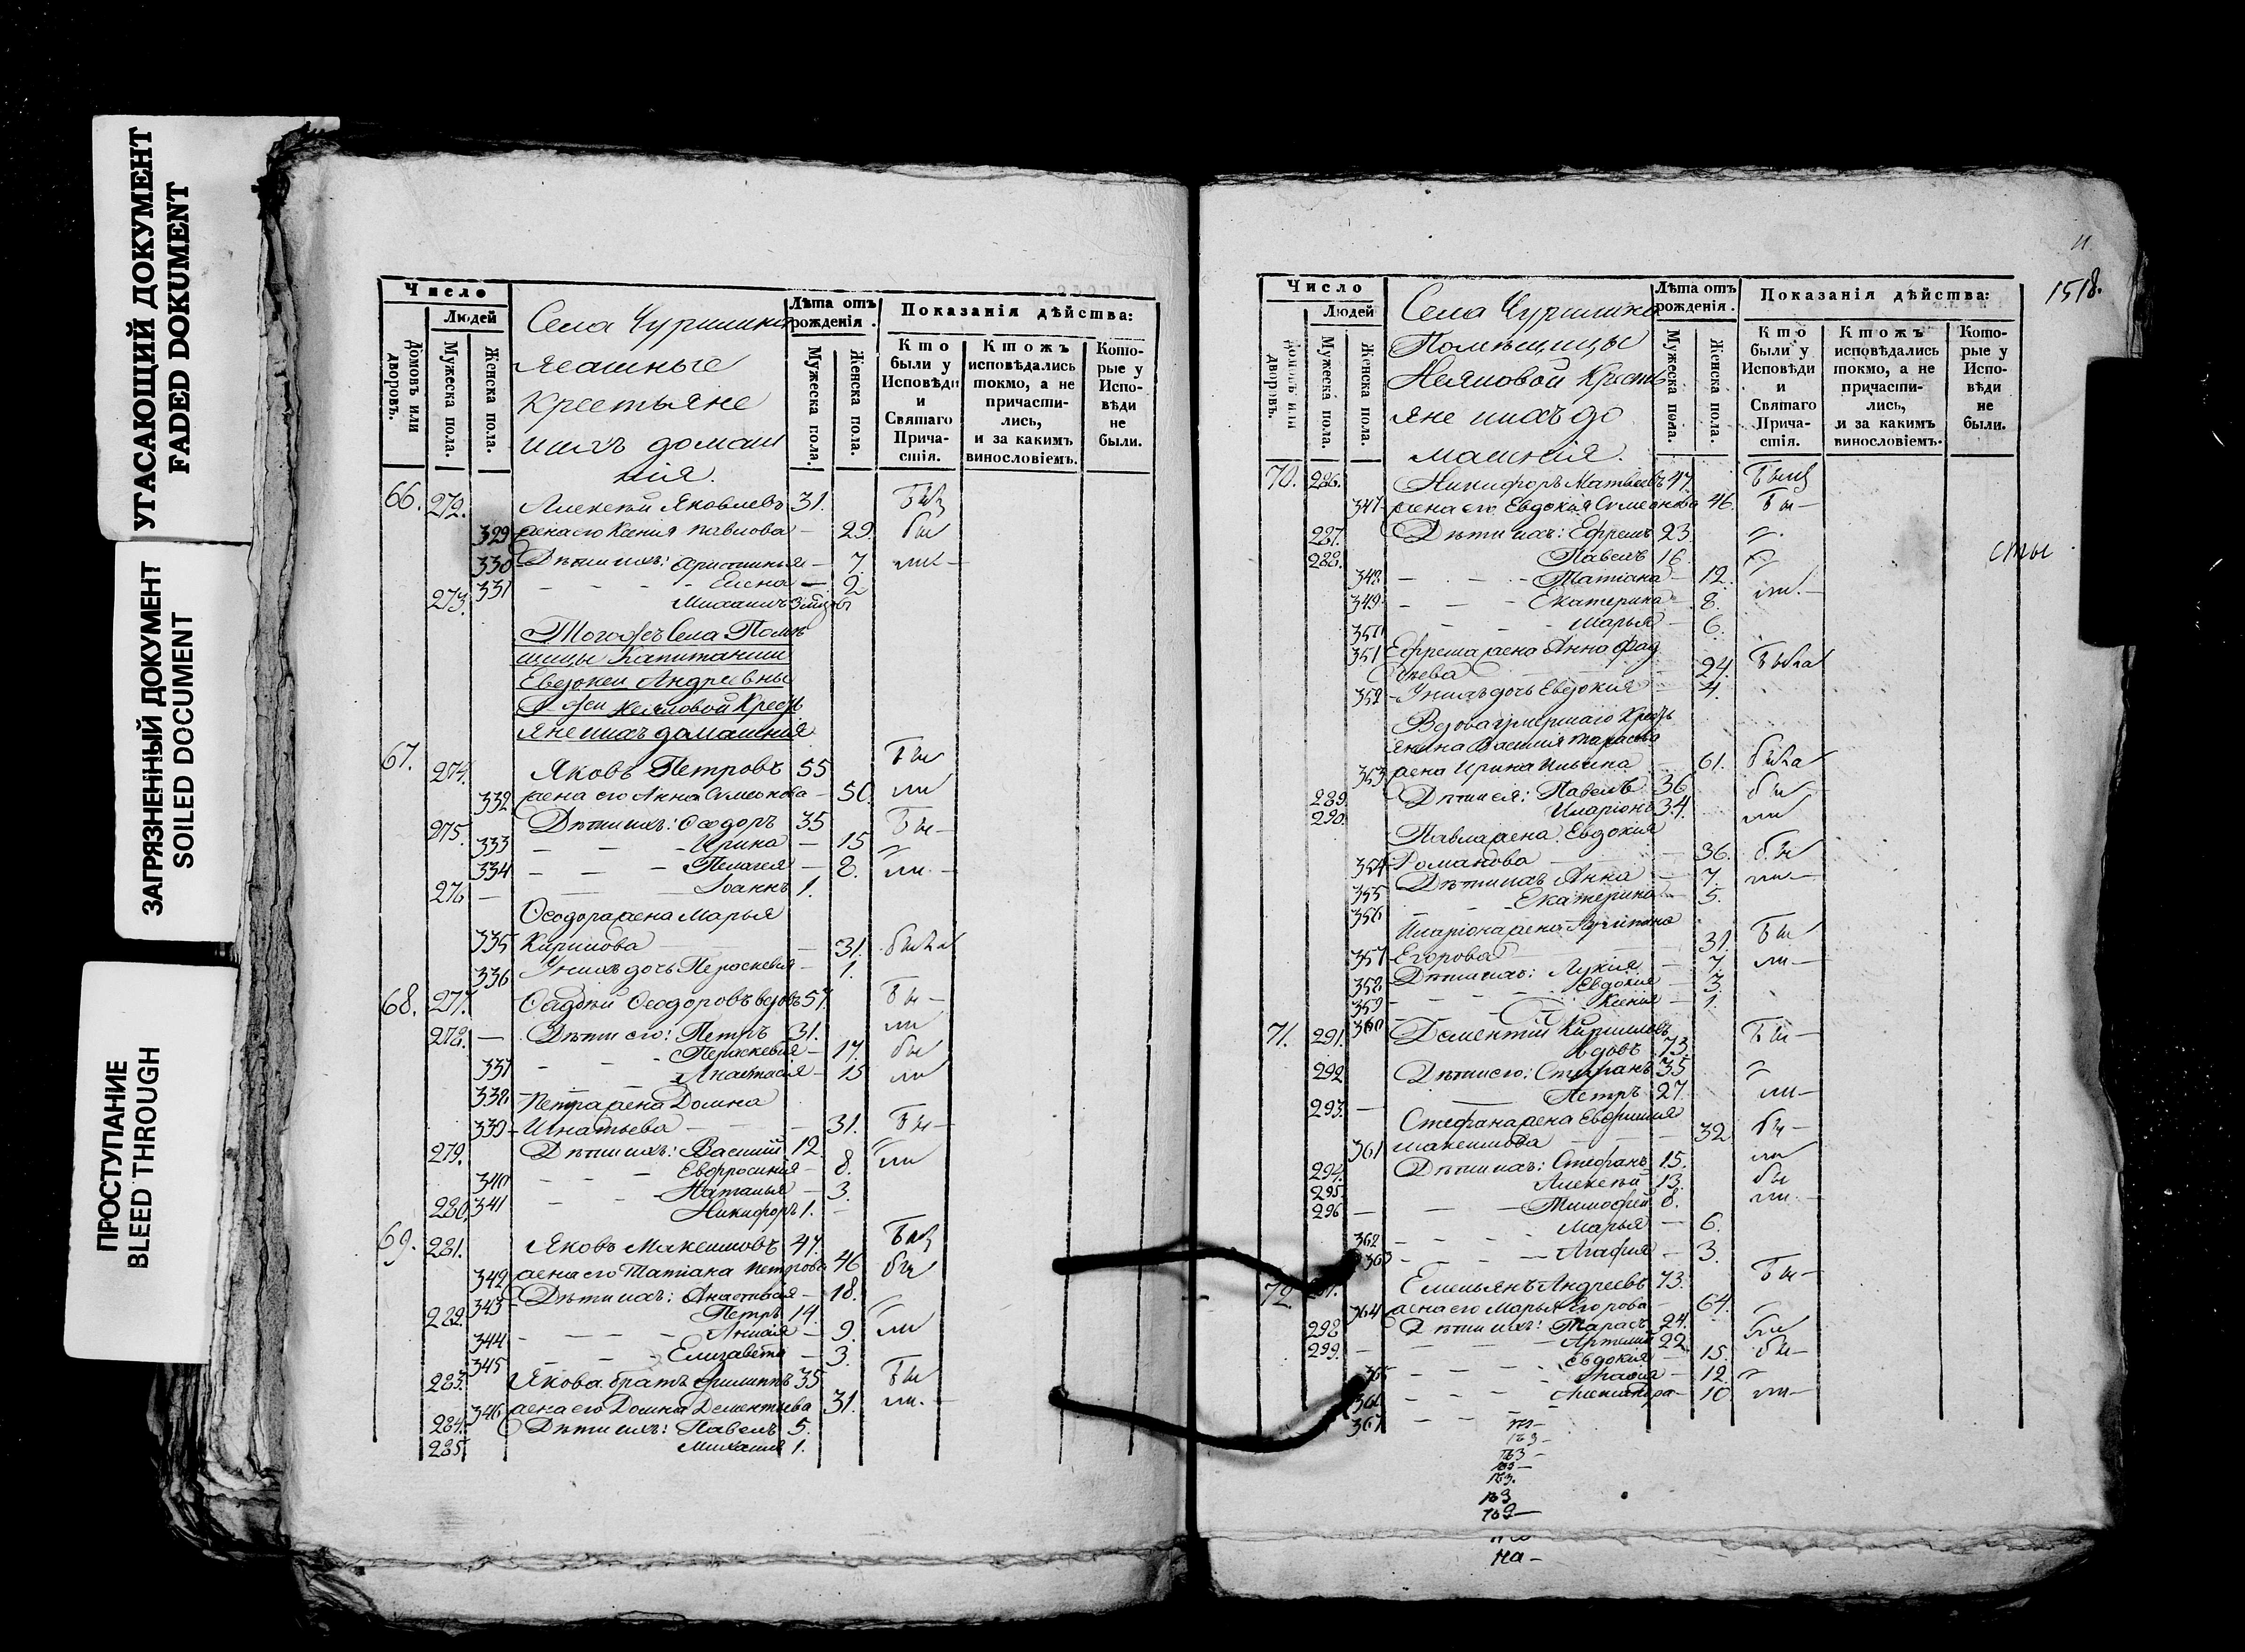 УГАСАЮЩИЙ ДОКУМЕНТ
FADED DOKUMENT
ЗАГРЯЗНЕННЫЙ ДОКУМЕНТ
SOILED DOCUMENT
ПРОСТУПАНИЕ
BLEED THROUGH
Число
Людей
Домовъ или дворовъ.
Мужеска пола.
Женска пола.
Села Чурилина
Ясашные
Крестьяне
ихъ домаш
нія.
Лѣта отъ рожденія.
Мужеска пола.
Женска пола.
Показанія дѣйства:
Кто были у Исповѣди и Святаго Причастія.
Ктожъ исповѣдались токмо, а не причастились, и за какимъ винословіемъ.
Которые у Исповѣди не были.
66. 272. Алексѣй Яковлевъ 31.
329 жена его Ксенія Павлова — 29.
330 Дѣти ихъ: — 7
331 Елена — 2
273. Михаилъ
Тогожъ Села Помѣ
щицы Капитанши
Евдокеи Андреевны
Нееловой Кресть
яне ихъ домашнія
67. 274. Яковъ Петровъ 55
332 жена его Анна Симеонова — 50.
275. Дѣти ихъ: Ѳеодоръ 35
333 — Ирина — 15
334 — Пелагея — 8.
276 — Іоаннъ 1.
Ѳеодора жена Марья
335 Кирилова — 31. была
336 У нихъ дочь Пераскевія — 1.
68. 277. Ѳадѣй Ѳеодоровъ вдовъ 57.
278. — Дѣти его: Петръ 31.
337 Пераскевія — 17.
338 Анастасія — 15
Петра жена Домна
339 Игнатьева — 31.
279. Дѣти ихъ: Василій 12.
340 Евфросинія — 8.
341 Наталья — 3.
280. Никифоръ 1.
69. 281. Яковъ Максимовъ 47.
342 жена его Татіана Петрова 46
343 Дѣти ихъ: Анастасія — 18.
282. Петръ 14.
344 — 9.
345 Елизавета — 3.
283. Якова братъ Филиппъ 35
346 жена его Домна Дементьева 31.
284. Дѣти ихъ: Павелъ 5.
285. Михаилъ 1.
11.
1518.
Число
Людей
Домовъ или дворовъ.
Мужеска пола.
Женска пола.
Села Чурилина
Помѣщицы
Нееловой Кресть
яне ихъ до
машнія.
Лѣта отъ рожденія.
Мужеска пола.
Женска пола.
Показанія дѣйства:
Кто были у Исповѣди и Святаго Причастія.
Ктожъ исповѣдались токмо, а не причастились, и за какимъ винословіемъ.
Которые у Исповѣди не были.
70. 286. Никифоръ Матвѣевъ 47.
347 жена его Евдокія Симеонова 46.
287. Дѣти ихъ: Ефремъ 23.
288. Павелъ 16.
348 — Татіана — 12.
349 — Екатерина — 8.
350 — Марья — 6.
351 Ефрема жена Анна Фад
ѣева — 24. была
352 У нихъ дочь Евдокія — 4.
Вдова умершаго Кресть
янина Василія Тарасова
353 жена Ирина Ильина 61. была
289. Дѣти ея: Павелъ 36
290. Иларіонъ 34.
Павла жена Евдокія
354 Романова — 36.
355 Дѣти ихъ Анна — 7
356 — Екатерина — 5.
Иларіона жена
357 Егорова — 31.
358 Дѣти ихъ: Лукія — 7.
359 — Евдокія — 3.
360 — Ксенія — 1.
71. 291. Дементій Кириловъ
вдовъ 73.
292 Дѣти его: Стефанъ 35
293. — Петръ 27.
Стефана жена Евфимія
361 Максимова — 32
294. Дѣти ихъ: Стефанъ 15.
295. Алексѣй 13.
296 — Тимофей 8.
362 Марья — 6.
363 Агафія — 3.
72 Емельянъ Андреевъ 73.
364 жена его Марья Егорова 64.
298 Дѣти ихъ: Тарасъ 24.
299. — 22
365 Евдокія 15.
— 12.
367 Александра 10
сты